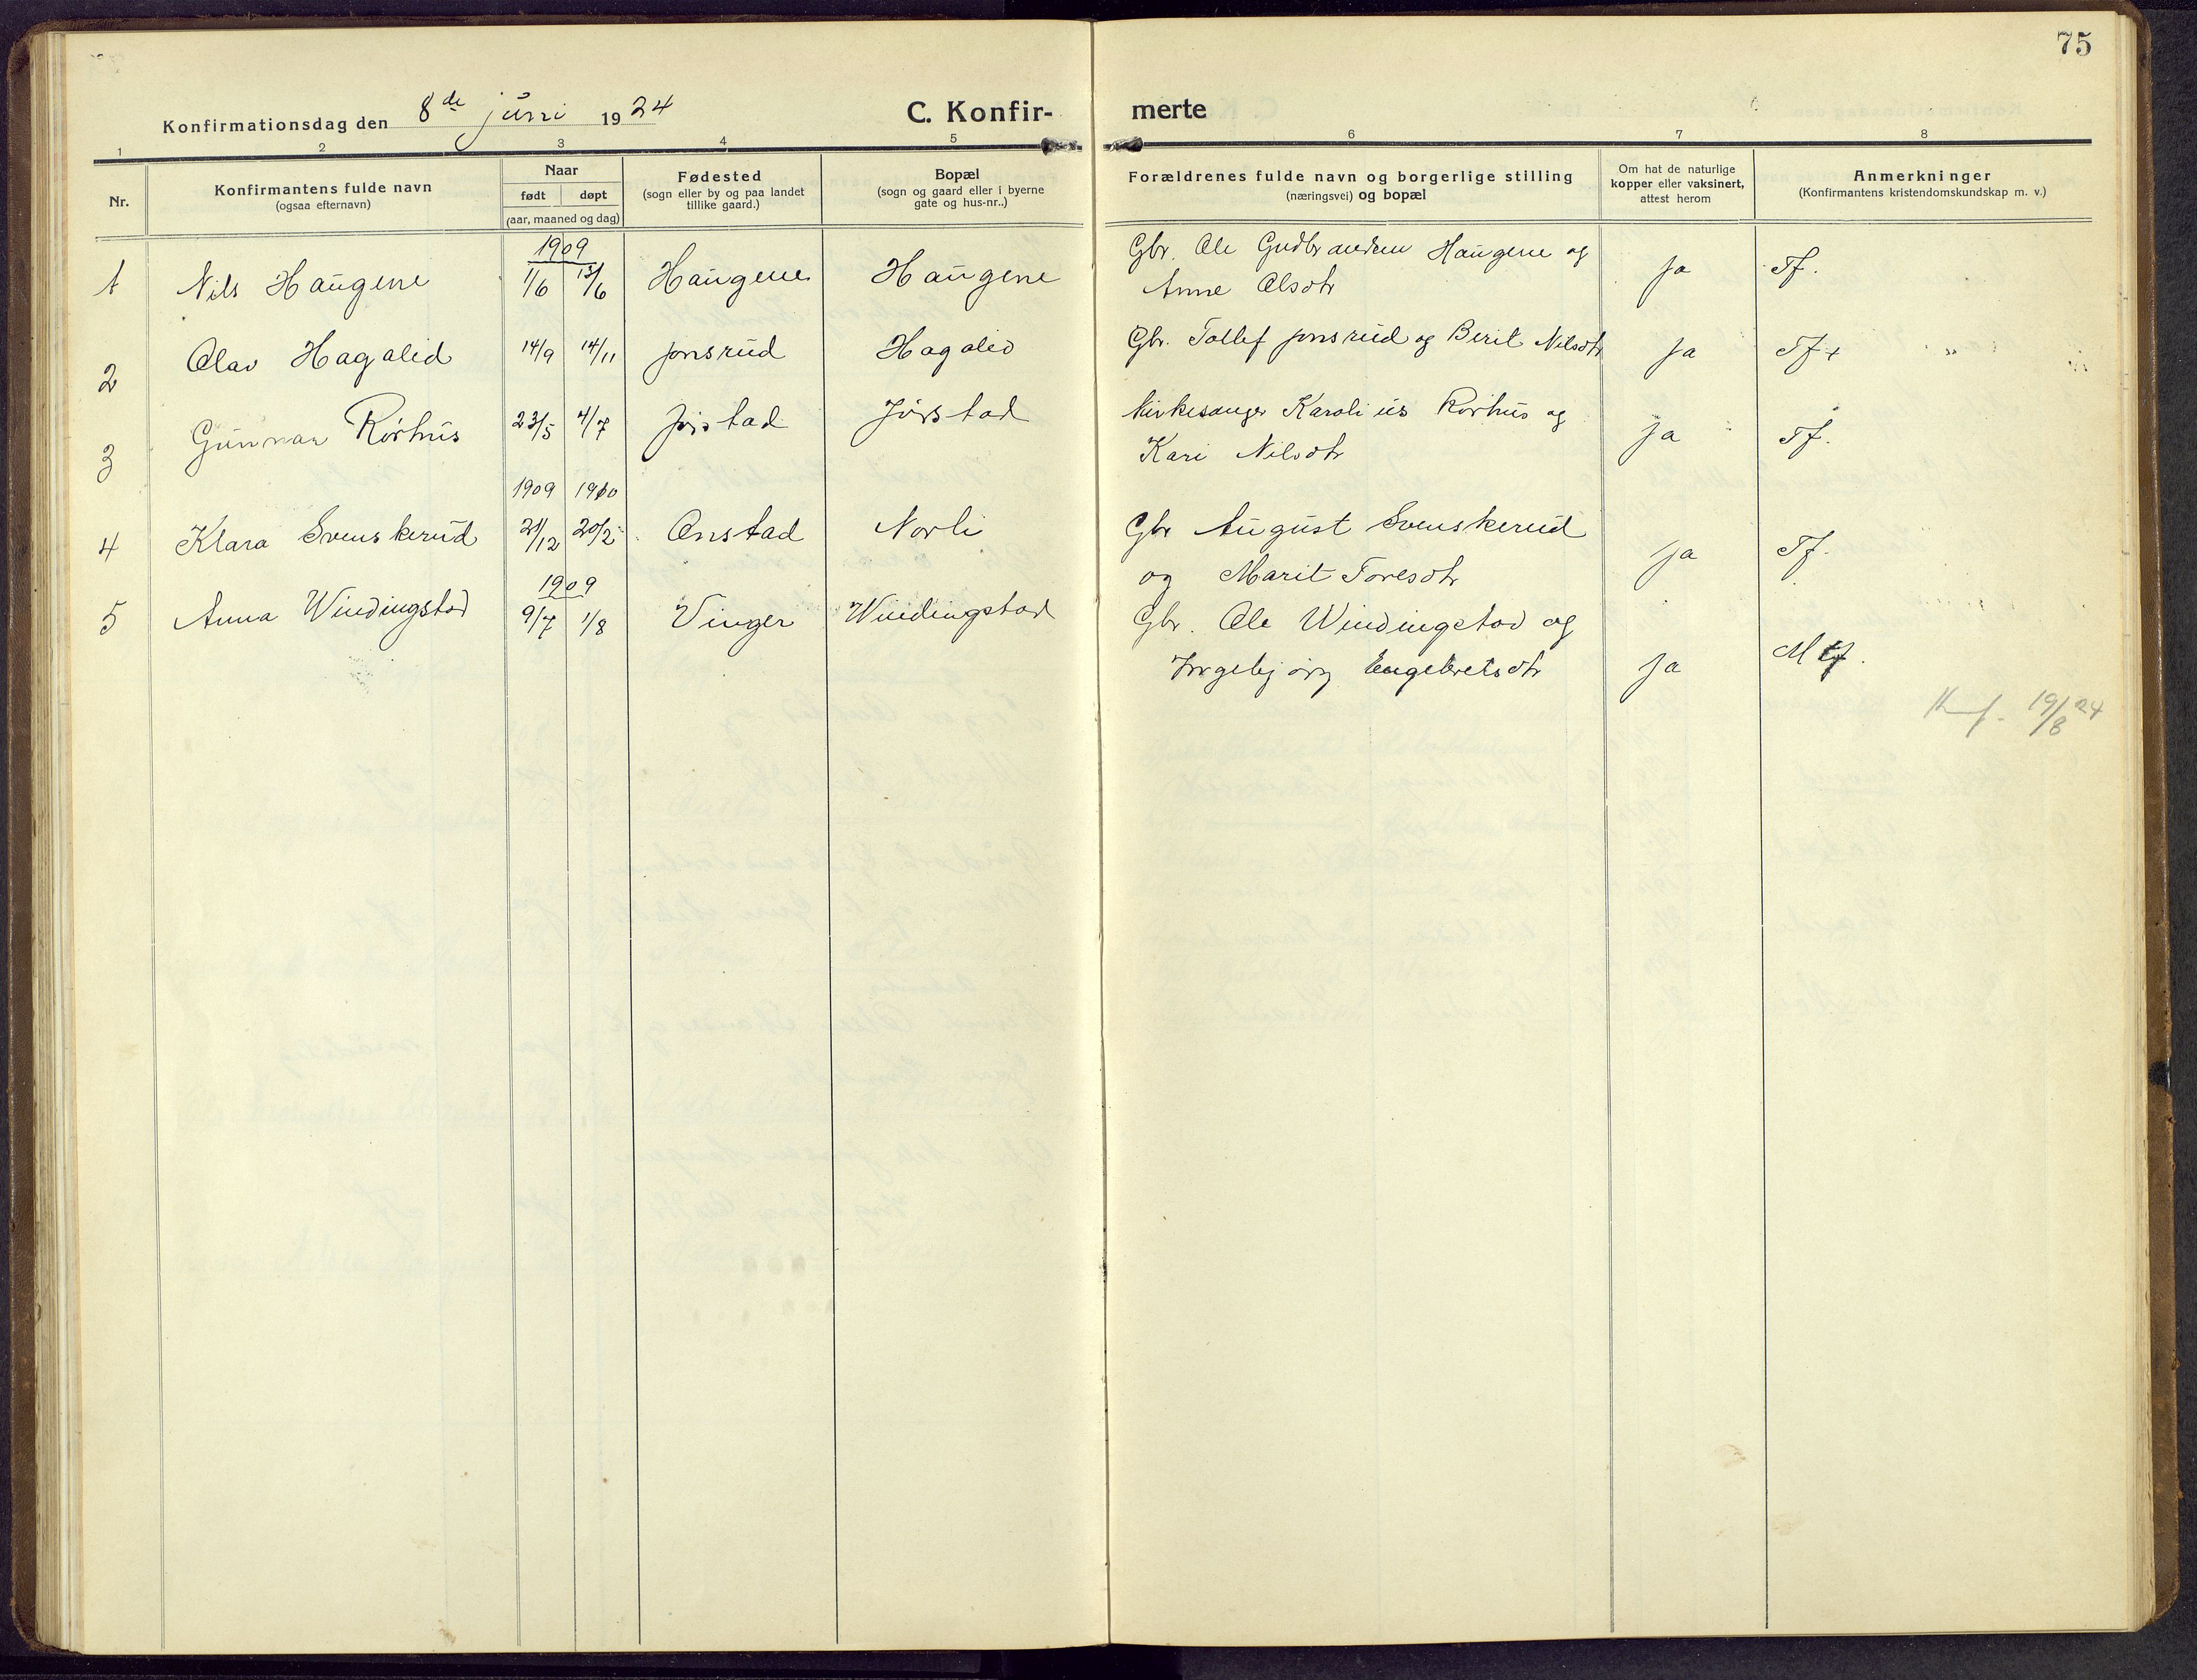 75
Konfirmationsdag den 8de juni 1924
C. Konfir-merte
1 2 3 4 5 6 7 8
Nr.
Konfirmantens fulde navn
(ogsaa efternavn)
Naar
født døpt
(aar, maaned og dag)
Fødested
(sogn eller by og paa landet
tillike gaard.)
Bopæl
(sogn og gaard eller i byerne
gate og hus-nr.,)
Forældrenes fulde navn og borgerlige stilling
(næringsvei) og bopæl
Om hat de naturlige
kopper eller vaksinert,
attest herom
Anmerkninger
(Konfirmantens kristendomskundskap m. v.)
1909
1 Nils Haugene 1/6 13/6 Haugene Haugene Gbr. Ole Gudbrandsen Haugene og
Anne Olsdtr ja Tf.
2 Olav Hagalid 14/9 14/11 Jonsrud Hagalid Gbr. Tollef Jonsrud og Berit Nilsdtr ja Tf+
3 Gunnar Rørhus 23/5 4/7 Jørstad Jørstad Kirkesanger Karolius Rørhus og
Kari Nilsdtr ja Tf.
1909 1910
4 Klara Svenskerud 21/12 20/2 Onstad Norli Gbr August Svenskerud
og Marit Toresdtr ja Tf.
1909
5 Anna Windingstad 9/7 1/8 Vinger Windingstad Gbr. Ole Windingstad og
Ingebjørg Engebretsdtr ja Mtf.
Knf. 19/8 24